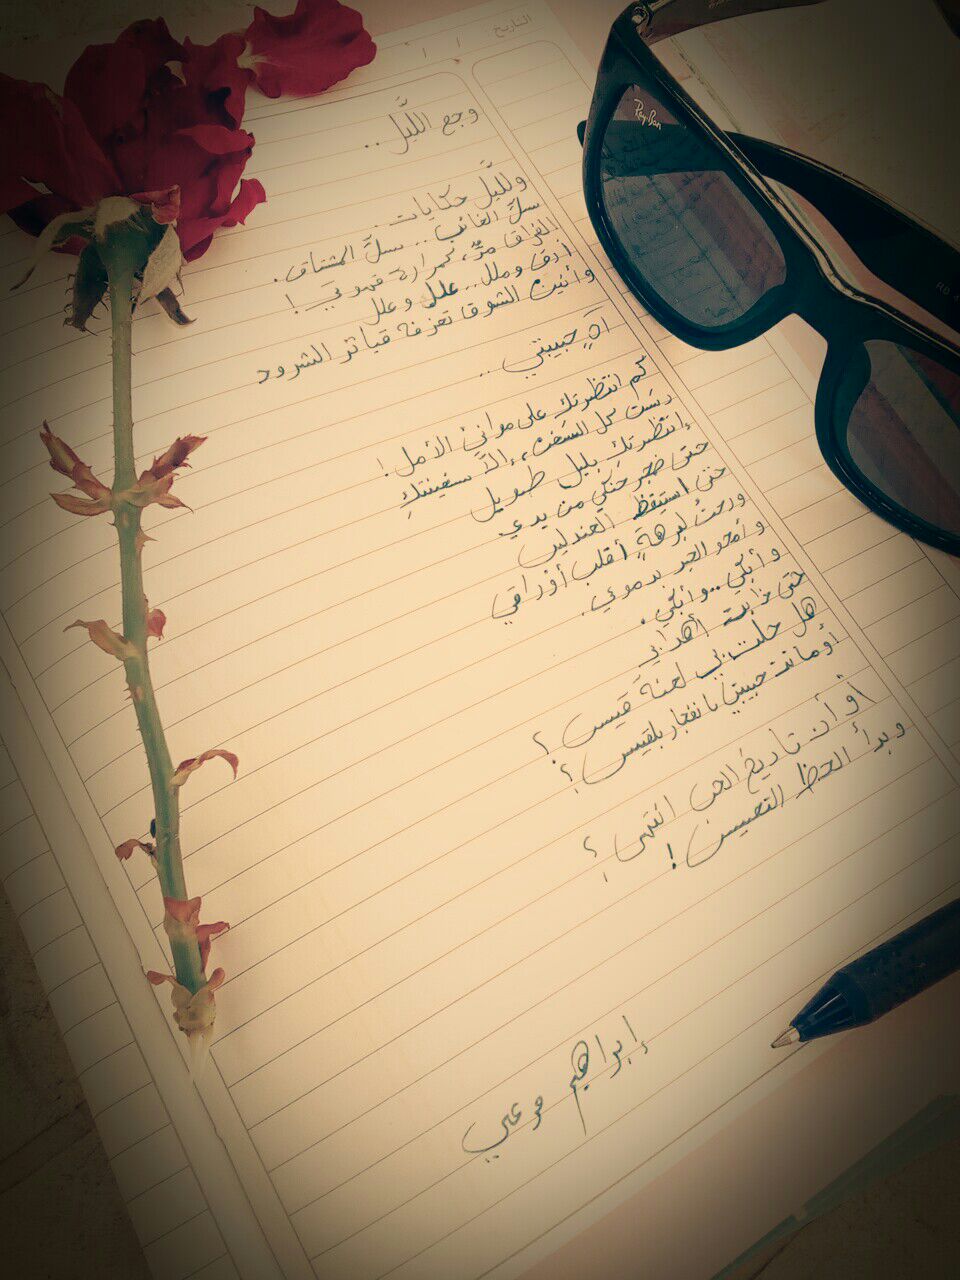 التاريخ / /
وجع اللَّيل ..
ولليَّل حكايات
سلَّ الغائب .. سلَّ المشتاق .
الفراق مرٌّ، كمرارة قهوتي !
أرق وملل .. علل وعلل
وأنين الشوق تعزفه قياثر الشرود
آهٍ حبيبتي ...
كم انتظرتكِ على موانئ الأمل !
رسَت كل السفن، إلَّا سفينتكِ
إنتظرتكِ بليل طويل
حتى ضجر من يدي
حتى استيقظ العندليب
ورحتُ لبرهةٍ أقلب أوراقي
وأمحو الحبر بدموعي .
وأبكي .. وأبكي .
حتى ذابت أهدابي
هل حلت بي لعنةَ قيس ؟
أو ماتت حبيبتي بانفجار بلقيس ؟
أو أن تاريخ الحب انتهى ؟
وبدأ الحظ التعيس !
إبراهيم مرعي
Ray-Ban